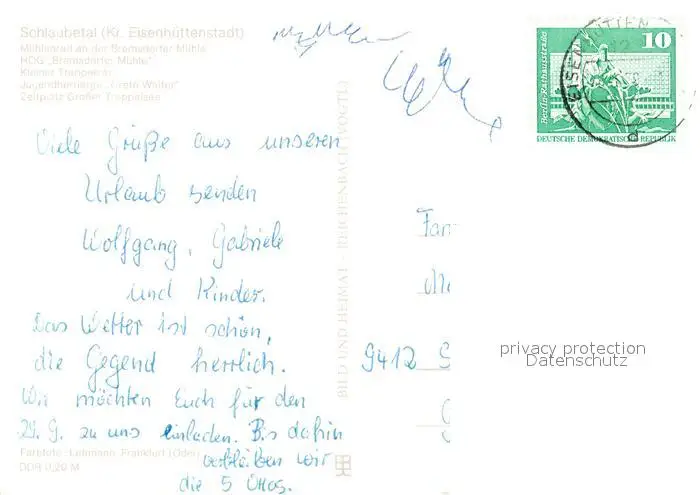 Schlaubetal (Kr. Eisenhüttenstadt)
Mühlenrad an der Bremsdorfer Mühle
HOG „Bremsdorfer Mühle"
Kleiner Treppelsee
Jugendherberge „Grete Walter"
Zeltplatz Großer Treppelsee
Viele Grüße aus unseren
Urlaub senden
Wolfgang, Gabriele
und Kinder.
Das Wetter ist schön,
die Gegend herrlich.
Wir möchten Euch für den
29. 9. zu uns einladen. Bis dahin
verbleiben wir
die 5 Ottos.
Farbfoto: Lehmann, Frankfurt (Oder)
DDR 0,20 M
BILD UND HEIMAT · REICHENBACH (VOGTL)
Berlin-Rathausstraße
10
DEUTSCHE DEMOKRATISCHE REPUBLIK
Fam
9412 S
privacy protection
Datenschutz